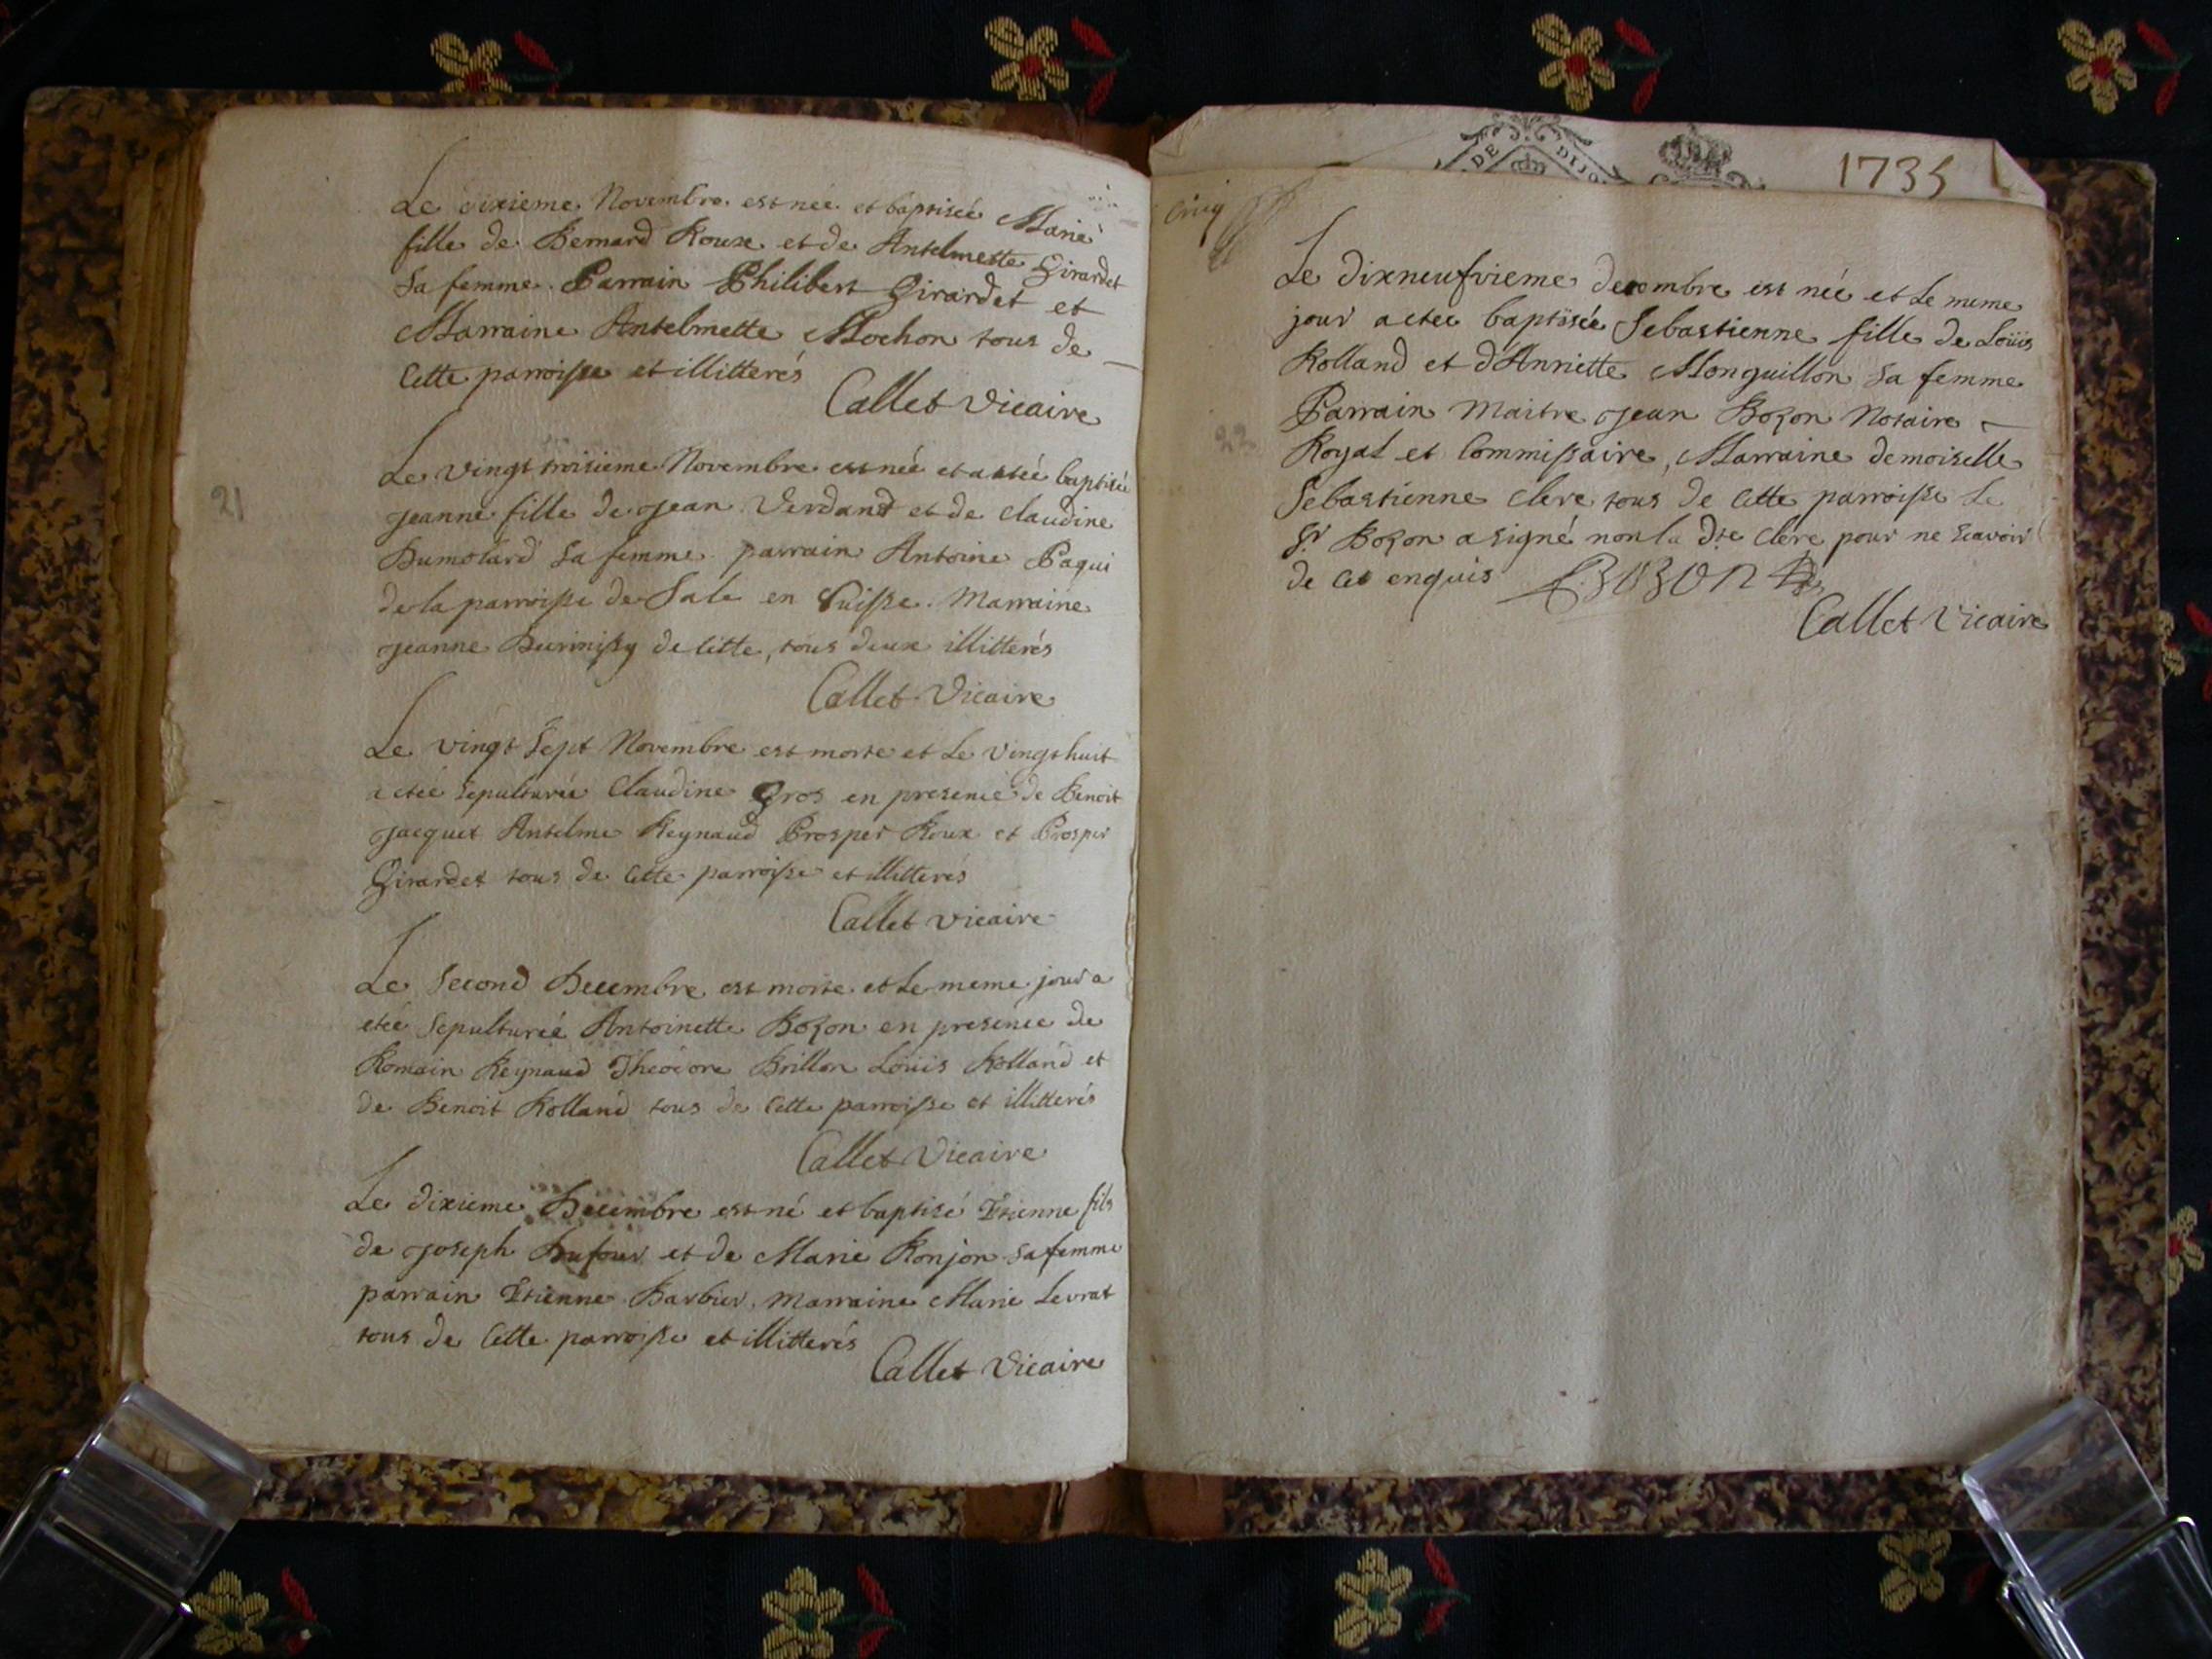 Le dixieme Novembre est née et baptiseé Marie
fille de Bernard Roux et de Antelmette Girardet
sa femme. Parrain Philibert Girardet et
Marraine Antelmette Mochon tous de
cette parroisse et illitterés
Callet Vicaire
21
Le vingt troisieme Novembre est neé et a eteé baptiseé
jeanne fille de jean Verdand et de claudine
Dumolard sa femme. parrain Antoine Paqui
de la parroisse de Sale en Suisse. Marraine
jeanne de cette, tous deux illitterés
Callet Vicaire
Le vingt sept Novembre est morte et le vingt huit
a eteé sepultureé Claudine Gros en presence de Benoit
jacquet Antelme Reynaud Prosper Roux et Prosper
Girardet tous de cette parroisse et illitterés
Callet vicaire
Le second Decembre est morte et le meme jour a
eteé sepultureé Antoinette Bozon en presence de
Romain Reynaud Theodore Brillon Loüis Rolland et
de Benoit Rolland tous de cette parroisse et illitterés
Callet Vicaire
Le dixieme Decembre est né et baptisé Etienne fils
de joseph Dufour et de Marie Ronjon sa femme
parrain Etienne Barbier, marraine Marie Levrat
tous de cette parroisse et illitterés
Callet Vicaire
DE DIJO
1735
cinq
Le dixneufvieme decembre est neé et le meme
jour a eteé baptiseé Sebastienne fille de Loüis
Rolland et d'Anriette Monguillon sa femme
Parrain Maitre jean Bozon Notaire
Royal et Commissaire, Marraine demoiselle
22
Sebastienne clerc tous de cette parroisse le
Sr Bozon a signé non la dte clerc pour ne scavoir
de ce enquis Bozon
Callet Vicaire